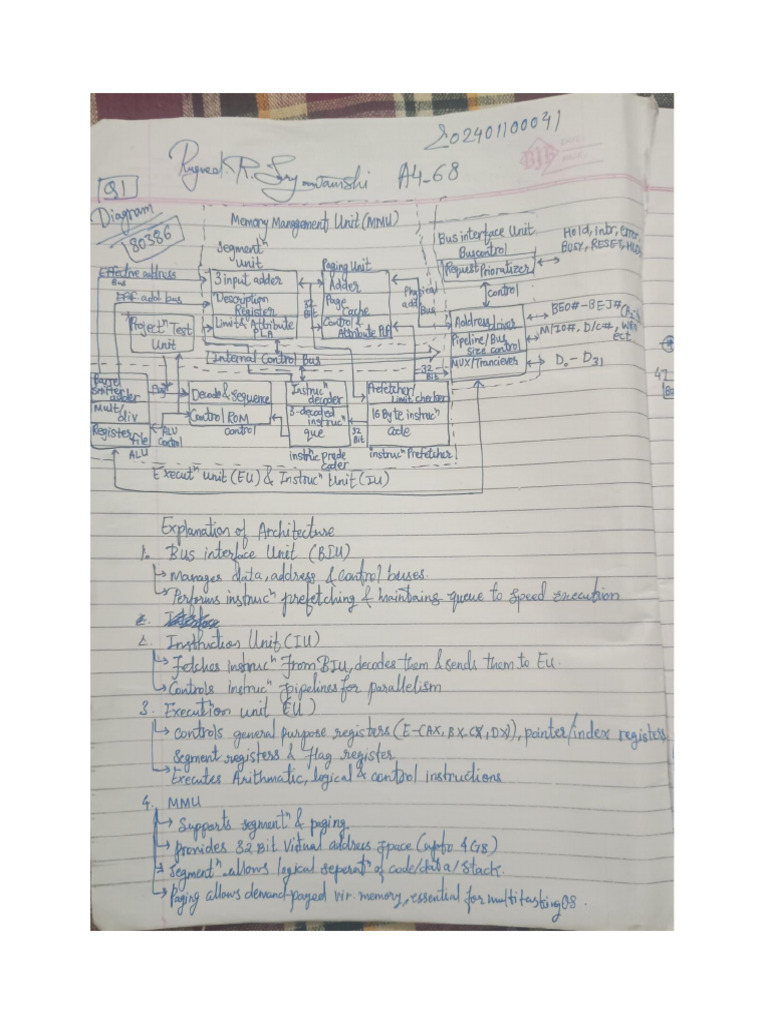 202401100041
R. A4-68
Q1
Diagram
80386
Memory Management Unit (MMU)
Segmentⁿ
unit
Paging Unit
Bus interface Unit
Buscontrol
Request Prioritizer
Hold, Intr, error
BUSY, RESET,
control
Effective address
Bus
Eff add bus
3 input adder
Description
Register
Limit & Attribute
PLA
32
Bit
Adder
Page
Cache
Control &
Attribute PLA
Physical
add
Bus
Address driver
Pipeline/Bus
size control
MUX/Tranciever
BE0#-BE3#
M/IO#, D/C#,
ect.
D₀-D₃₁
"Project" Test
Unit
Internal Control Bus
32
Bit
Barrel
shifter
adder
Mult/
div
Register
file
ALU
ALU
Control
Decode & Sequence
Control ROM
control
Instrucⁿ
decoder
3-decoded
instrucⁿ
que
32
Bit
Prefetcher/
Limit checker
16 Byte instrucⁿ
code
instrucⁿ Prefetcher
Executⁿ unit (EU) & Instrucⁿ Unit (IU)
Explanation of Architecture
1. Bus interface Unit (BIU)
→ Manages data, address & control buses.
→ Performs instrucⁿ prefetching & maintains queue to speed execution
2. Instruction Unit (IU)
→ Fetches instrucⁿ from BIU, decodes them & sends them to EU.
→ Controls instrucⁿ pipelines for parallelism
3. Execution unit (EU)
→ Controls general purpose registers (E-(AX, BX, CX, DX)), pointer/index registers
segment registers & flag register
→ Executes Arithmatic, logical & control instructions
4. MMU
→ Supports segmentⁿ & paging
→ Provides 32 Bit Virtual address space (upto 4GB)
→ Segmentⁿ allows logical seperatⁿ of code/data/stack.
→ Paging allows demand-paged vir. memory, essential for multitasking OS.
47